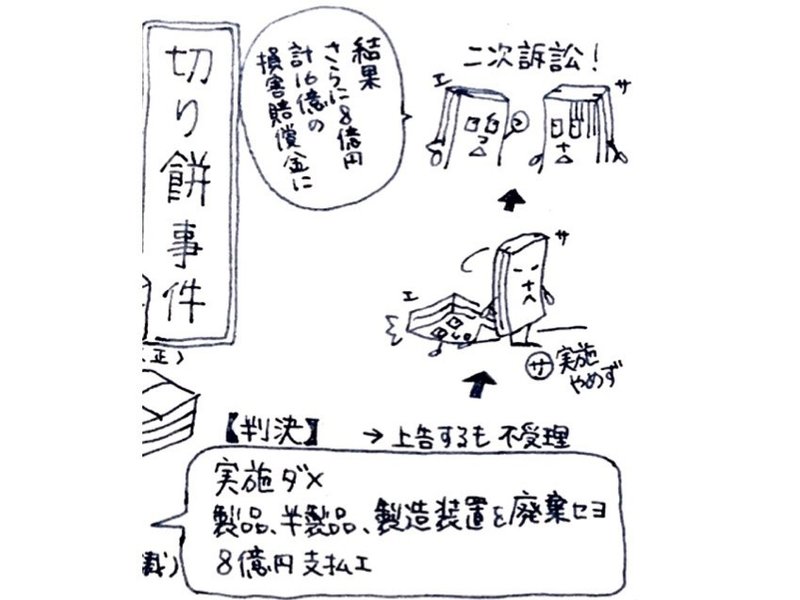 切り餅事件
結果
さらに8億円
計16億の
損害賠償金に
二次訴訟!
エ
サ
サ
エ
サ 実施
やめず
正)
【判決】 → 上告するも 不受理
実施ダメ
製品、半製品、製造装置を廃棄セヨ
8億円支払エ
裁)